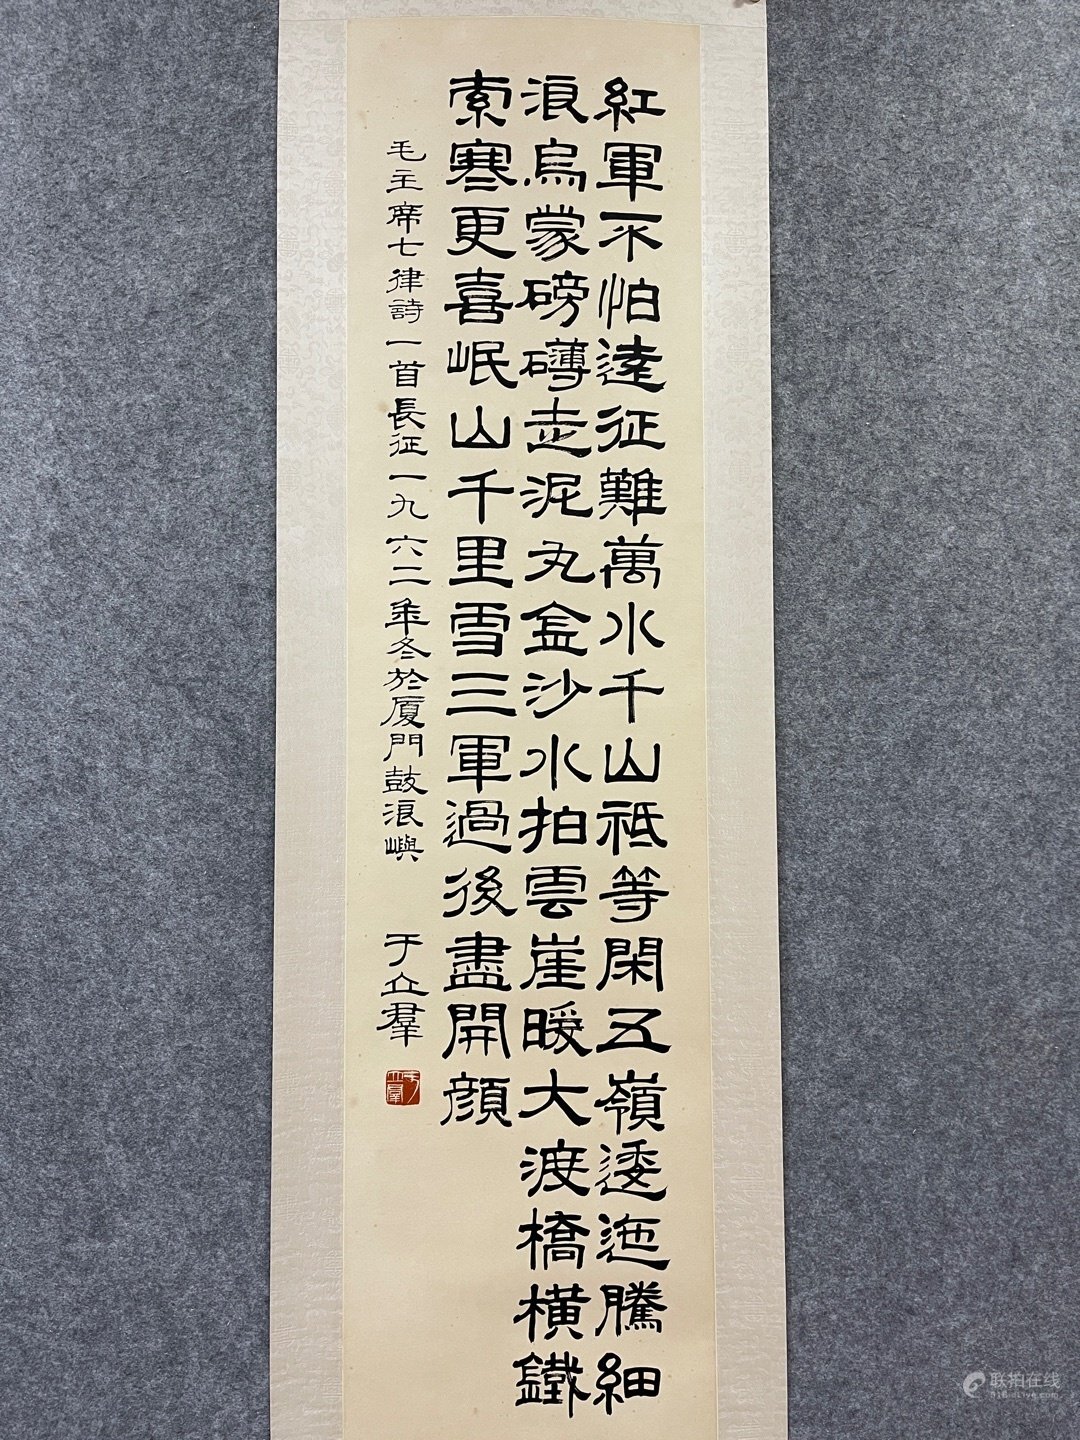 紅軍不怕遠征難萬水千山祗等閑五嶺逶迤騰細
浪烏蒙磅礴走泥丸金沙水拍雲崖暖大渡橋橫鐵
索寒更喜岷山千里雪三軍過後盡開顏
毛主席七律詩一首長征一九六二年冬於厦門鼓浪嶼 于立羣
于立羣
联拍在线
51bidlive.com